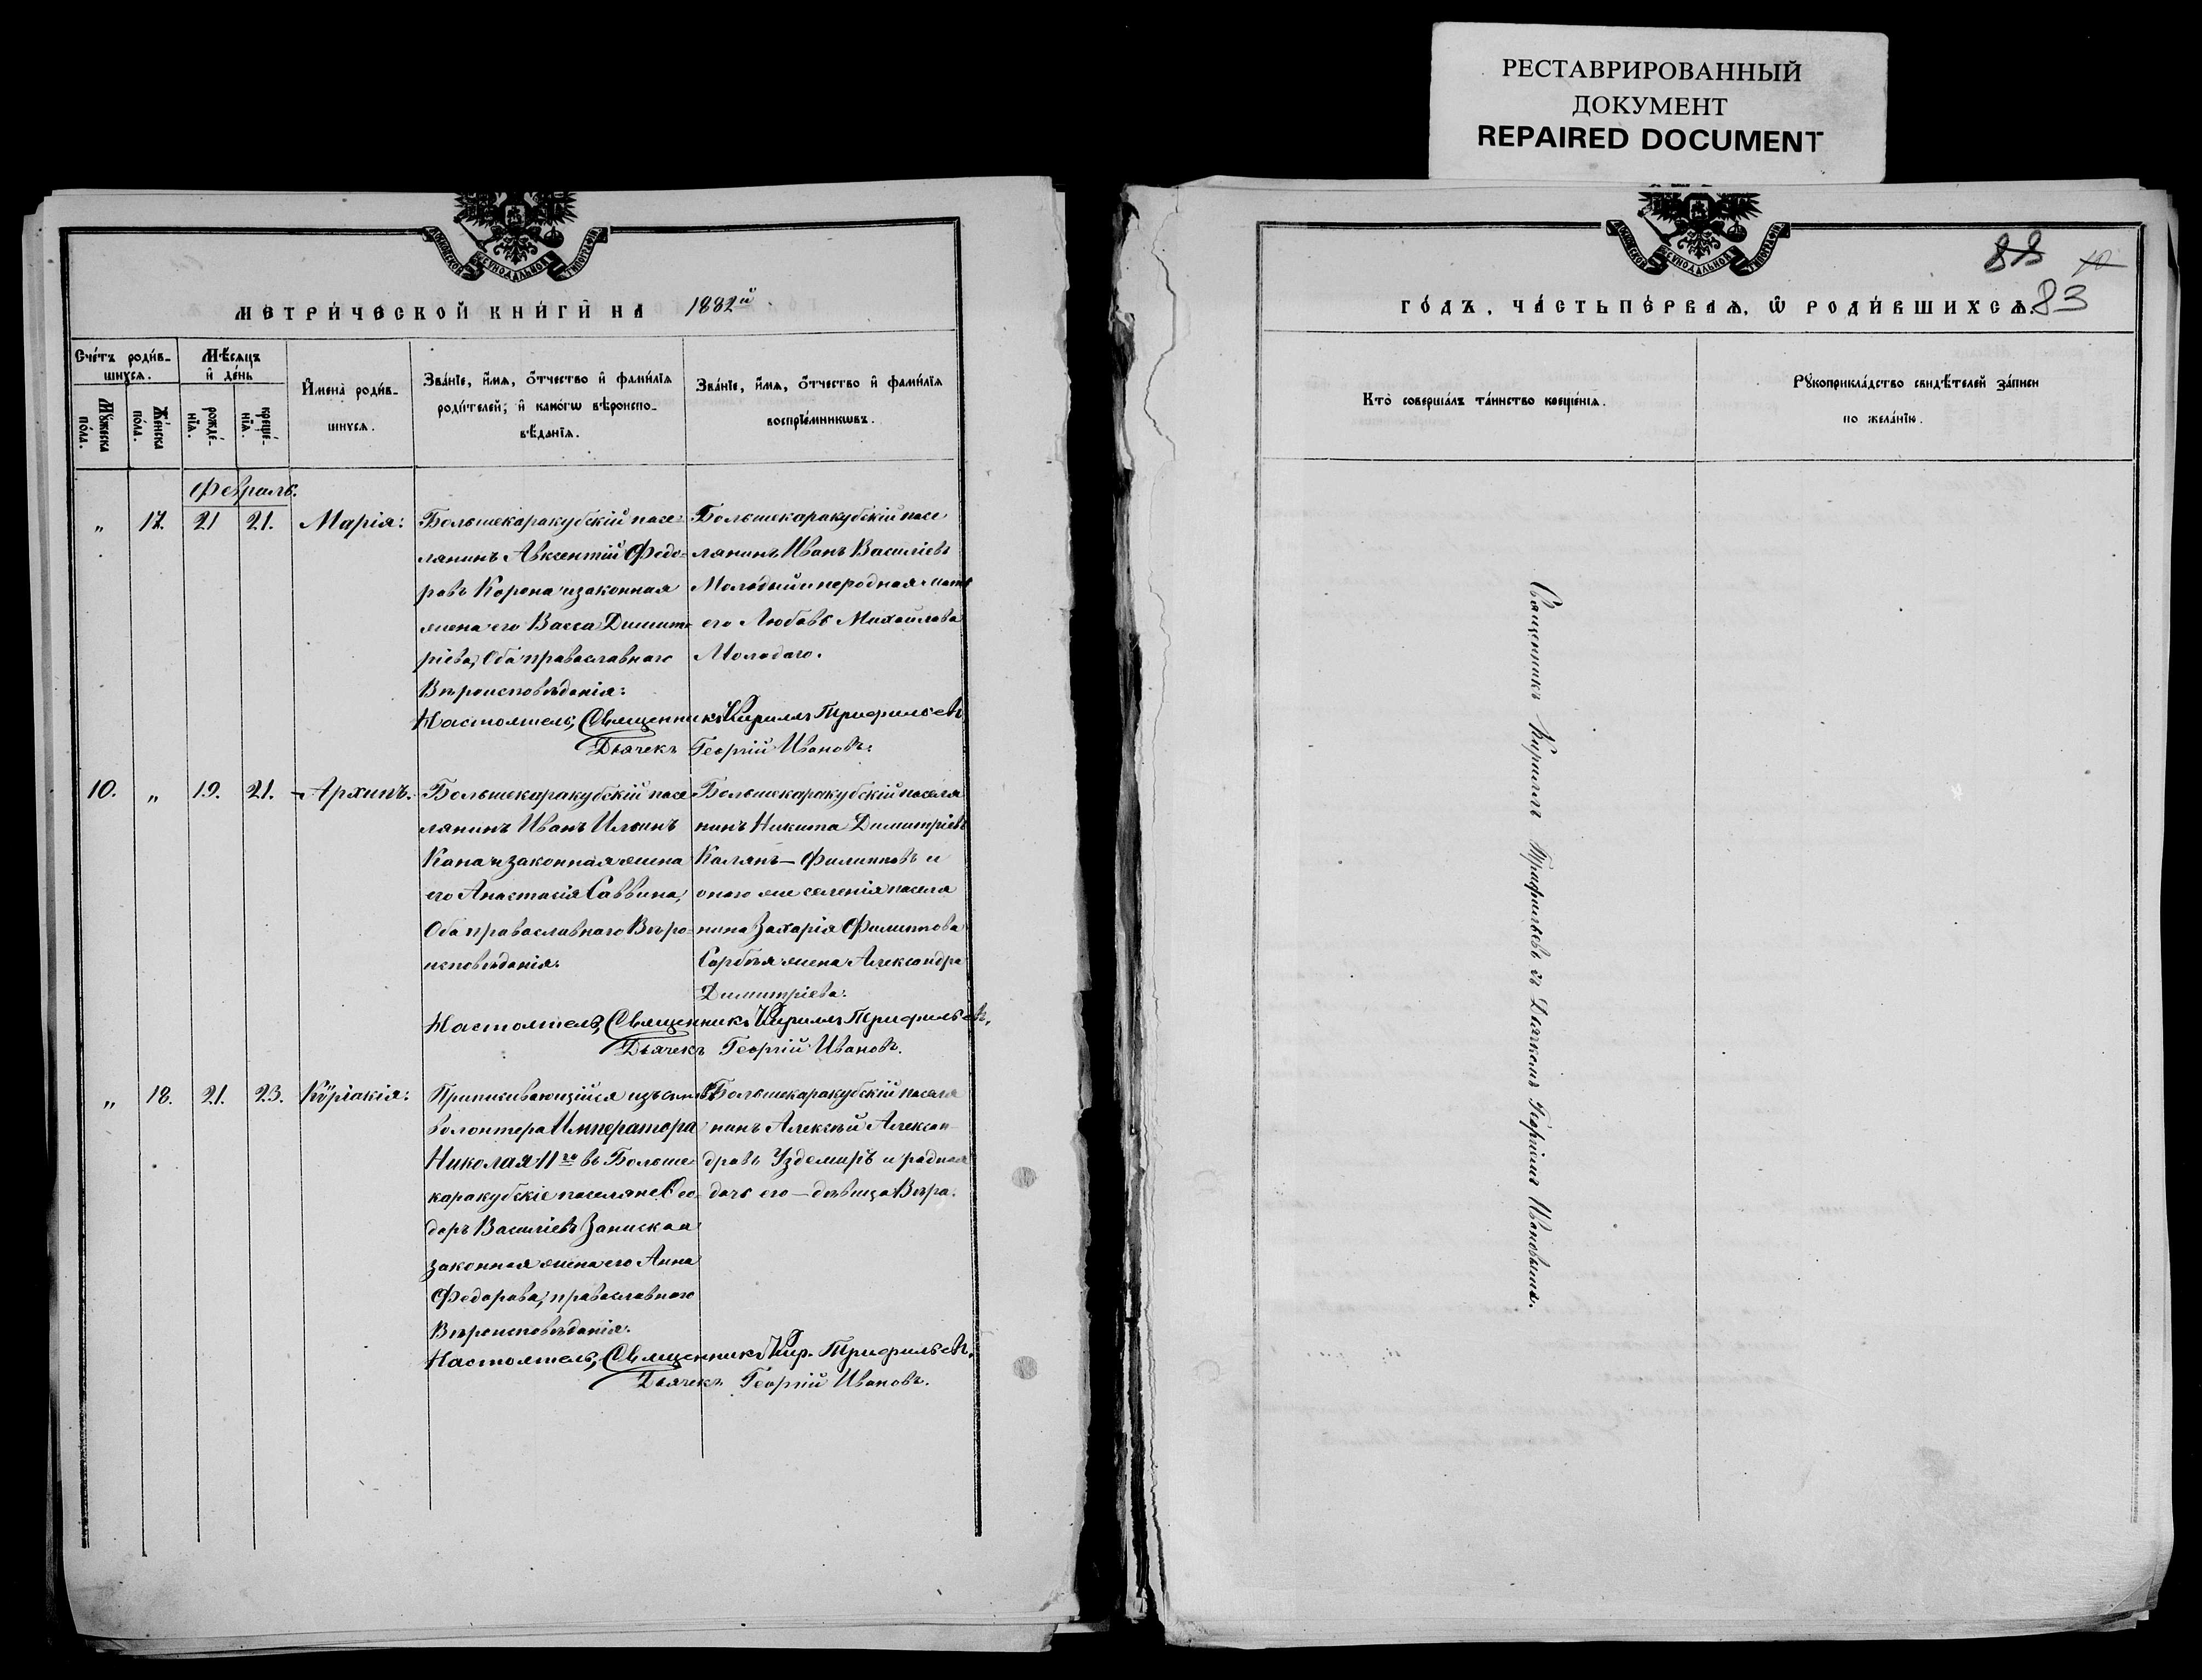 РЕСТАВРИРОВАННЫЙ
ДОКУМЕНТ
REPAIRED DOCUMENT
МОСКОВСКОЙ СѴНОДАЛЬНОЙ ТИПОГРАФІИ
МЕТРИ́ЧЕСКОЙ КНИ́ГИ НА 1882й
Сче́тъ роди́в-
шихся.
Мѣ́сяцъ
и де́нь
Мꙋ́жеска
по́ла.
Же́нска
по́ла.
рожде́-
нїя.
креще́-
нїя.
Имена̀ роди́в-
шихся.
Зва́нїе, и́мя, о́тчество и фами́лїя
роди́телей; и како́гѡ вѣроиспо-
вѣ́данїя.
Зва́нїе, и́мя, о́тчество и фами́лїя
воспрїе́мникѡвъ.
Февраль.
„ 17. 21 21. Марія: Большекаракубскій посе-
лянинъ Авксентій Федо-
ровъ Корона и законная
жена его Васса Димит-
ріева, Оба православнаго
Вѣроисповѣданія:
Большекаракубскій посе
лянинъ Иванъ Василіевъ
Молодый и неродная мать
его Любовь Михайлова
Молодаго.
Настоятель, Священникъ Кириллъ Трифильевъ
Дьячекъ Георгій Ивановъ.
10. „ 19. 21. Архипъ. Большекаракубскій посе
лянинъ Иванъ Ильинъ
Капа и законная жена
его Анастасія Саввина,
Оба православнаго Вѣро-
исповѣданія.
Большекаракубскій поселя
нинъ Никита Димитріевъ
Калянъ—Филипповъ и
онаго же селенія поселя
нина Захарія Филиппова
жена Александра
Димитріева.
Настоятель, Священникъ Кириллъ Трифильевъ,
Дьячекъ Георгій Ивановъ.
„ 18. 21. 23. Кѵріакія: Приписывающійся изъ
волонтера Императора
Николая II го въ Больше-
каракубскіе поселяне Ѳео-
доръ Василіевъ
законная жена его Анна
Федорова, православнаго
Вѣроисповѣданія.
Большекаракубскій поселя
нинъ Алексѣй Алексан-
дровъ Уздемиръ и родная
дочь его — дѣвица Вѣра.
Настоятель, Священникъ Кир. Трифильевъ,
Дьячекъ Георгій Ивановъ.
МОСКОВСКОЙ СѴНОДАЛЬНОЙ ТИПОГРАФІИ
88 10
ГО́ДЪ, ЧА́СТЬ ПЕ́РВАЯ, Ѡ РОДИ́ВШИХСЯ. 83
Кто̀ соверша́лъ та́инство креще́нїя.
Рꙋкоприкла́дство свидѣ́телей за́писи
по жела́нїю.
Священникъ Кириллъ Трифильевъ съ Дьячкомъ Георгіемъ Ивановымъ.